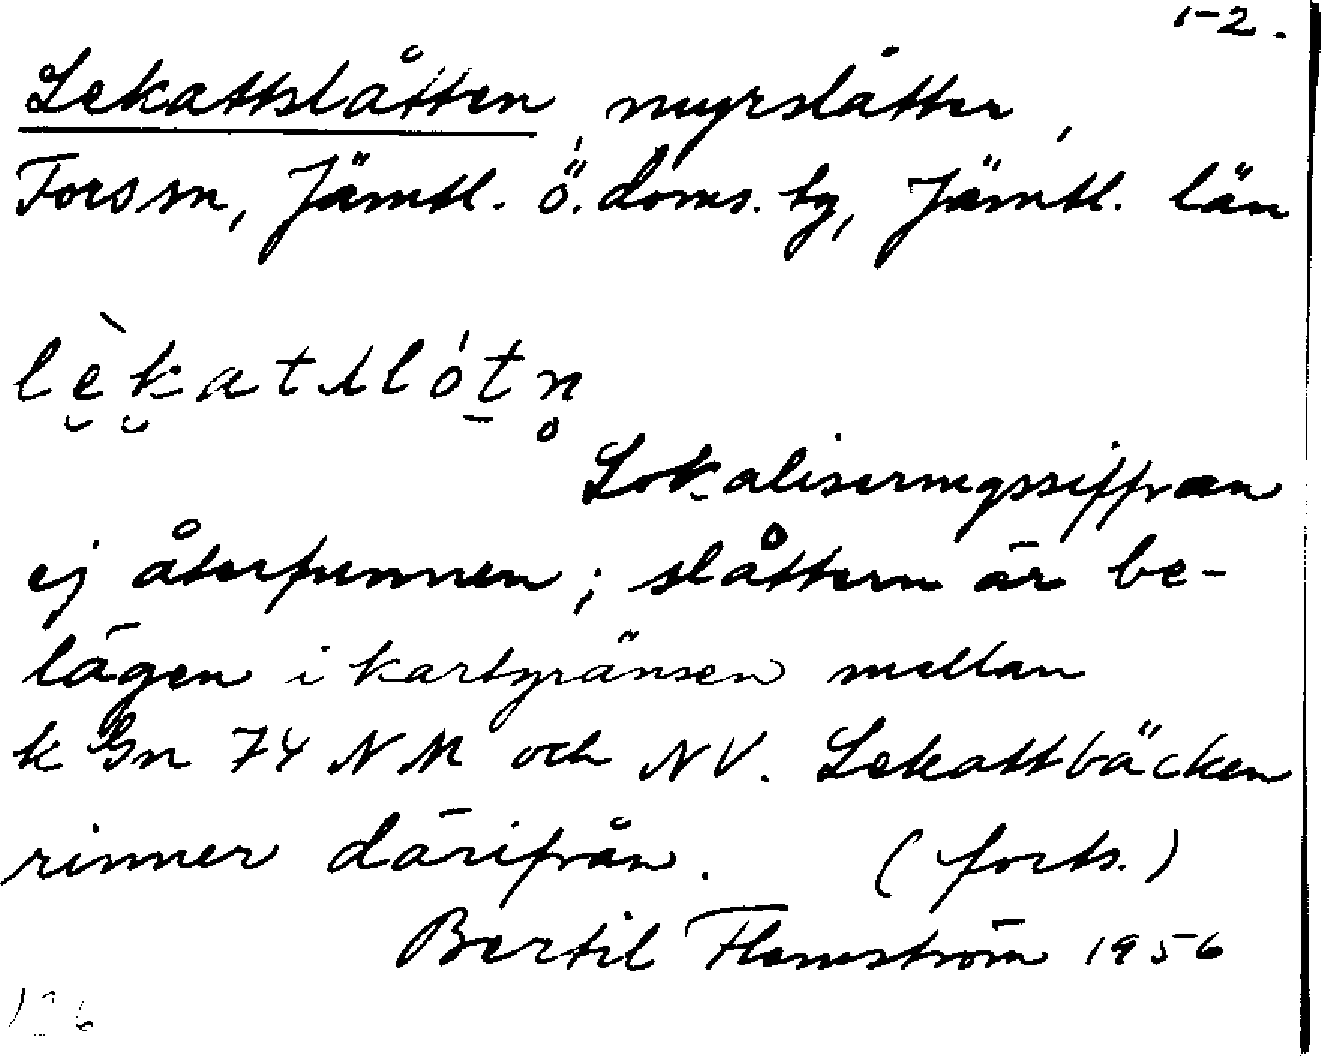 1-2.
Lekattslåtten, myrslåtter,
Fors sn, Jämtl. ö. doms. bg, Jämtl. län
lèkatslótn̥
Lokaliseringssiffran
ej återfunnen; slåttern är be-
lägen i kartgränsen mellan
k Gn 74 NM och NV. Lekattbäcken
rinner därifrån. (forts.)
Bertil Flemström 1956